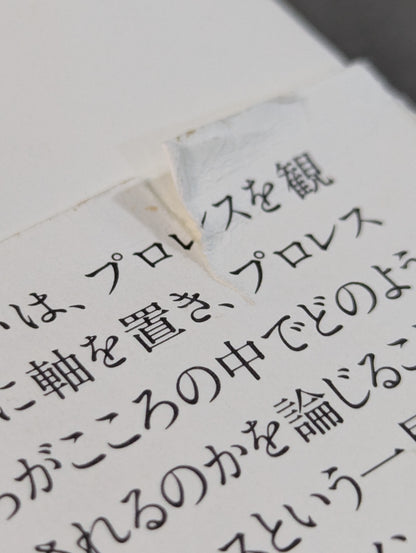 は、プロレスを観
に軸を置き、プロレス
がこころの中でどのよう
れるのかを論じるこ
スという一